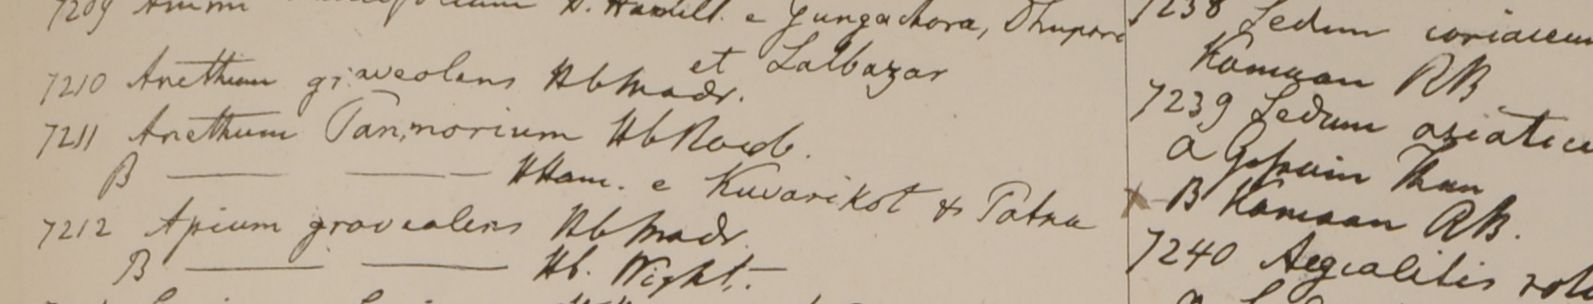 7209 H. Hamilt. e Gungachora, Dhupore
et Lalbazar
7210 Anethum graveolens Hb Madr.
7211 Anethum Panmorium Hb Roxb.
B — — HHam. e Kuvarikot & Patna
7212 Apium graveolens Hb Madr.
B — — Hb. Wight.
7238 Sedum coriaceum
Kamaon RB.
7239 Sedum asiaticu
a Gossain Than
B Kamaon RB.
7240 Aegialitis rotu